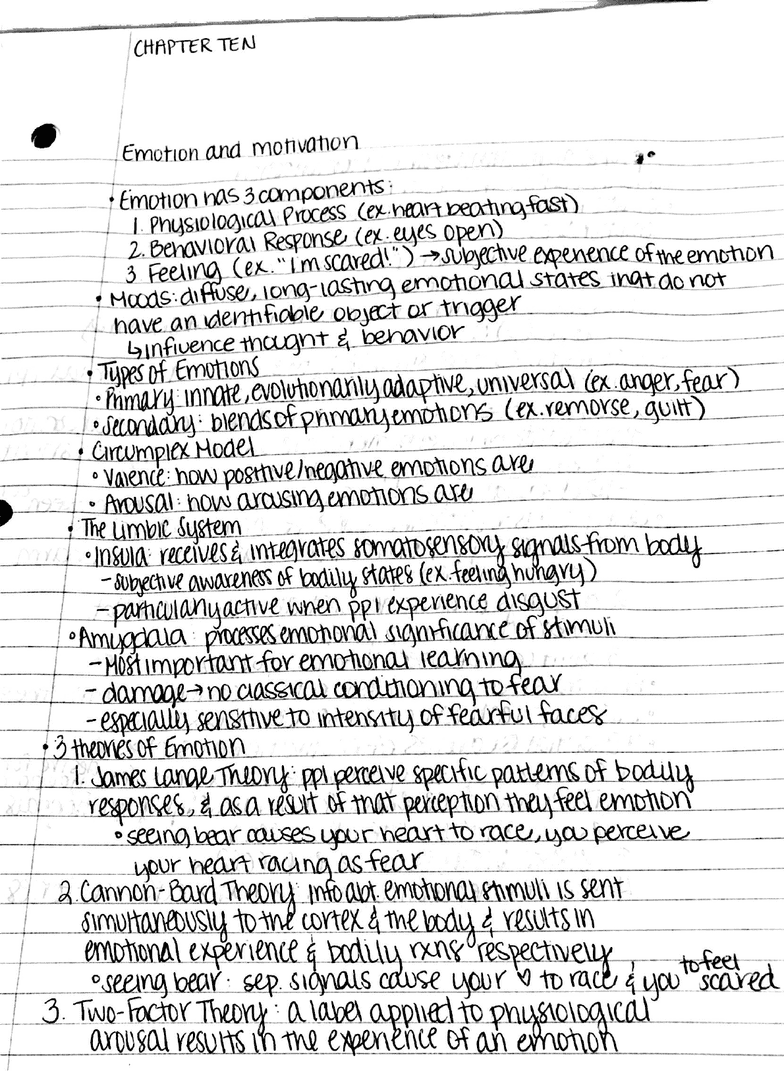 CHAPTER TEN
Emotion and motivation
• Emotion has 3 components:
1. Physiological Process (ex. heart beating fast)
2. Behavioral Response (ex. eyes open)
3 Feeling (ex. "I'm scared!") → subjective experience of the emotion
• Moods: diffuse, long-lasting emotional states that do not
have an identifiable object or trigger
↳ influence thought & behavior
• Types of Emotions
• Primary: innate, evolutionarily adaptive, universal (ex. anger, fear)
• Secondary: blends of primary emotions (ex. remorse, guilt)
• Circumplex Model
• Valence: how positive/negative emotions are
• Arousal: how arousing emotions are
• The Limbic System
• Insula: receives & integrates somatosensory signals from body
- subjective awareness of bodily states (ex. feeling hungry)
- particularly active when ppl experience disgust
• Amygdala: processes emotional significance of stimuli
- Most important for emotional learning
- damage → no classical conditioning to fear
- especially sensitive to intensity of fearful faces
• 3 theories of Emotion
1. James Lange Theory: ppl perceive specific patterns of bodily
responses, & as a result of that perception they feel emotion
• seeing bear causes your heart to race, you perceive
your heart racing as fear
2. Cannon-Bard Theory: info abt. emotional stimuli is sent
simultaneously to the cortex & the body & results in
emotional experience & bodily rxns respectively
• seeing bear: sep. signals cause your ♡ to race & you to feel scared
3. Two-Factor Theory: a label applied to physiological
arousal results in the experience of an emotion